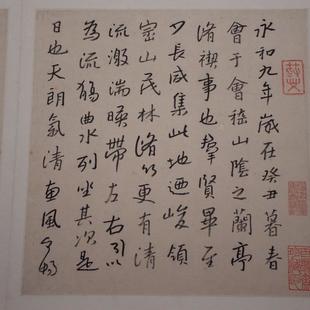 永和九年歲在癸丑暮春
會于會稽山陰之蘭亭
脩禊事也羣賢畢至
少長咸集此地迺峻領
崇山茂林脩竹更有清
流激湍暎帶左右引以
為流觴曲水列坐其次是
日也天朗氣清惠風和暢